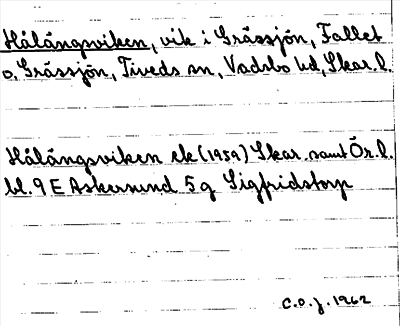 Hålängsviken, vik i Grässjön, Fallet
o. Grässjön, Tiveds sn, Vadsbo hd, Skar. l.
Hålängsviken ek (1959) Skar. samt Ör. l.
bl. 9 E Askersund 5 g Sigfridstorp
C.O.J. 1962